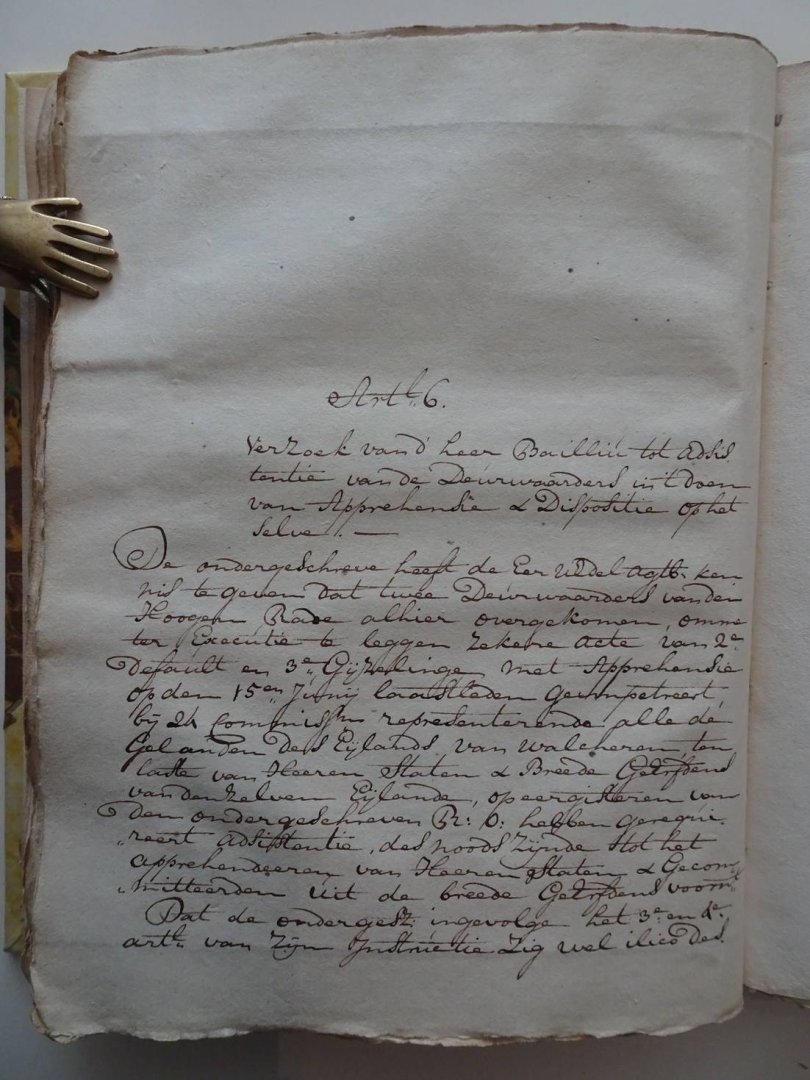 Artl. 6.
Verzoek vand' heer Bailliú tot adsis
tentie van de Deúrwaarders in 't doen
van Apprehensie & Dispositie op het
selve. —
De ondergeschreve heeft de Eer UEdel Agtb. ken-
nis te geven dat twee Deúrwaarders van den
Hoogen Rade alhier overgekomen, omme
ter Executie te leggen zekere acte van 2e.
Default en 3e. Gijzelinge met Apprehensie
op den 15en Junij laastleden geimpetreert,
bij 24 Commissm representerende alle de
Gelanden des Eijlands van Walcheren, ten
laste van Heeren Staten & Breede Geërfdens
van denzelven Eijlande, op eergisteren van
den ondergeschreven R: O: hebben gerequi-
"reert adsistentie, des noods zijnde tot het
apprehenderen van Heeren Staten & Gecom-
"mitteerden uit de breede Geërfdens voorn.
Dat de ondergesz: ingevolge het 3e. en 4e.
artl. van zijn Instructie zig wel ilico des